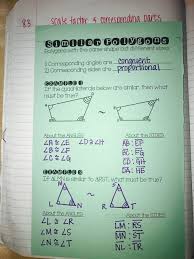 8.3 scale factor & corresponding parts
Similar Polygons
Polygons with the same shape but different sizes
① Corresponding angles are congruent
② Corresponding sides are proportional
EXAMPLE 1
If the quadrilaterals below are similar, then what must be true?
~
About the ANGLES: About the SIDES:
∠A ≅ ∠E ∠D ≅ ∠H AB : EF
∠B ≅ ∠F
∠C ≅ ∠G
EXAMPLE 2
If △LMN is similar to △RST, what must be true?
M S
~
L N R T
About the ANGLES: About the SIDES:
∠L ≅ ∠R LM : RS
∠M ≅ ∠S MN : ST
∠N ≅ ∠T NL : TR